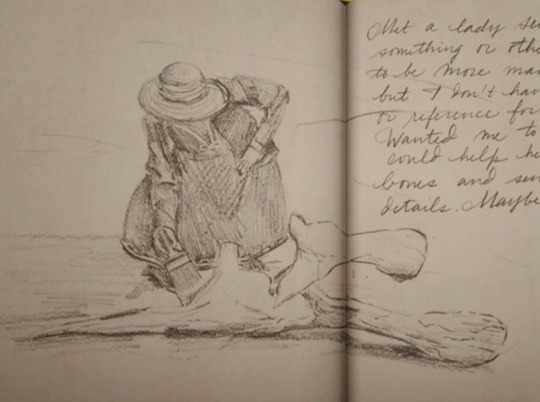 Met a lady
something or
to be more
but I don't
or reference for
Wanted me to
could help
bones and
details. Maybe